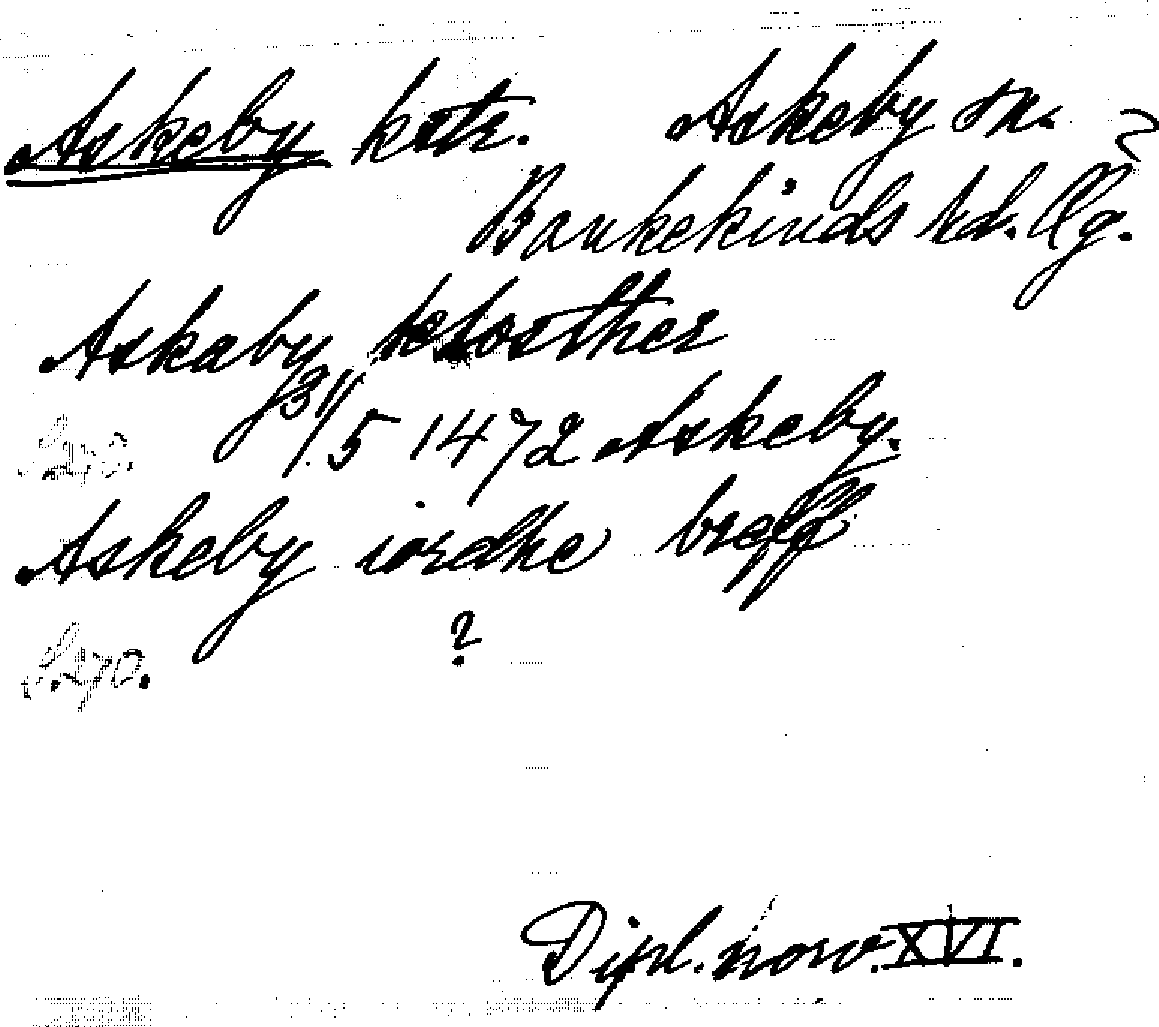 Askeby kstr. Askeby sn.
Bankekinds hd. Ög.
Askaby klosther
31/5 1472 Askeby.
S. 270.
Askeby iordhe breff
S. 270. ?
Dipl. norv. XVI.